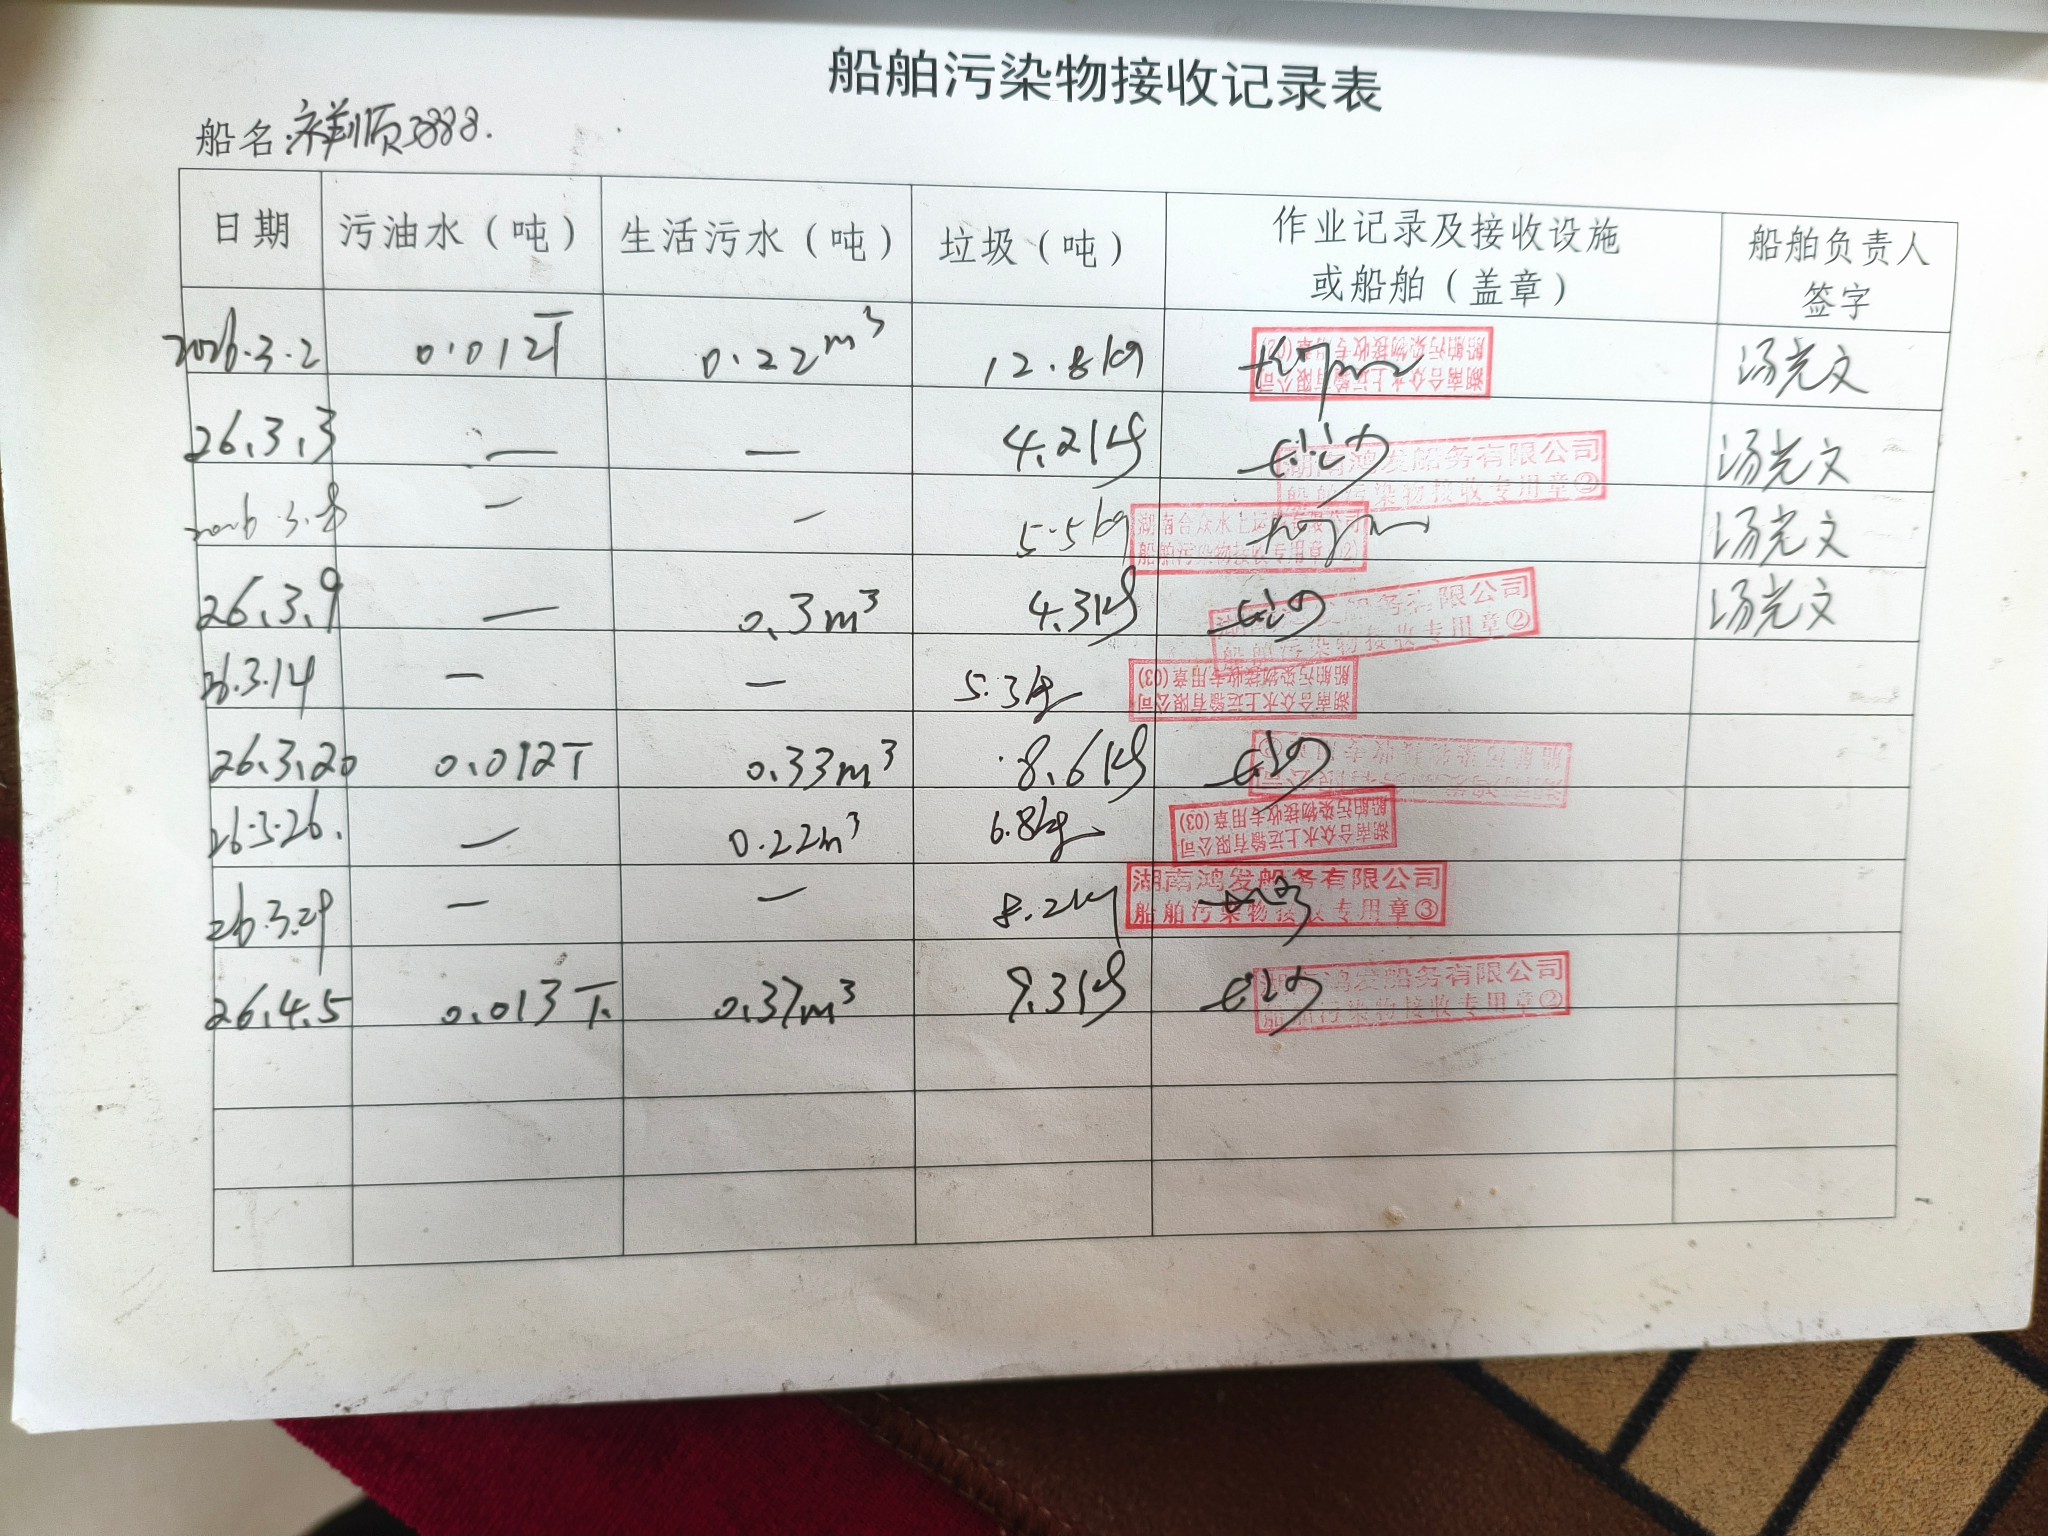 船舶污染物接收记录表
船名:祥顺3888.
日期 污油水（吨） 生活污水（吨） 垃圾（吨） 作业记录及接收设施或船舶（盖章） 船舶负责人签字
2026.3.2 0.012T 0.22m³ 12.8kg 湖南合众水上运输有限公司 船舶污染物接收专用章(02) 汤光文
26.3.3 — — 4.2kg 湖南鸿发船务有限公司 船舶污染物接收专用章② 汤光文
2026.3.8 — — 5.5kg 湖南合众水上运输有限公司 船舶污染物接收专用章(02) 汤光文
26.3.9 — 0.3m³ 4.3kg 湖南鸿发船务有限公司 船舶污染物接收专用章② 汤光文
26.3.14 — — 5.3kg 湖南合众水上运输有限公司 船舶污染物接收专用章(03)
26.3.20 0.012T 0.33m³ 8.6kg
26.3.26. — 0.22m³ 6.8kg 湖南合众水上运输有限公司 船舶污染物接收专用章(03)
26.3.29 — — 8.2kg 湖南鸿发船务有限公司 船舶污染物接收专用章③
26.4.5 0.013T. 0.37m³ 9.3kg 湖南鸿发船务有限公司 船舶污染物接收专用章②